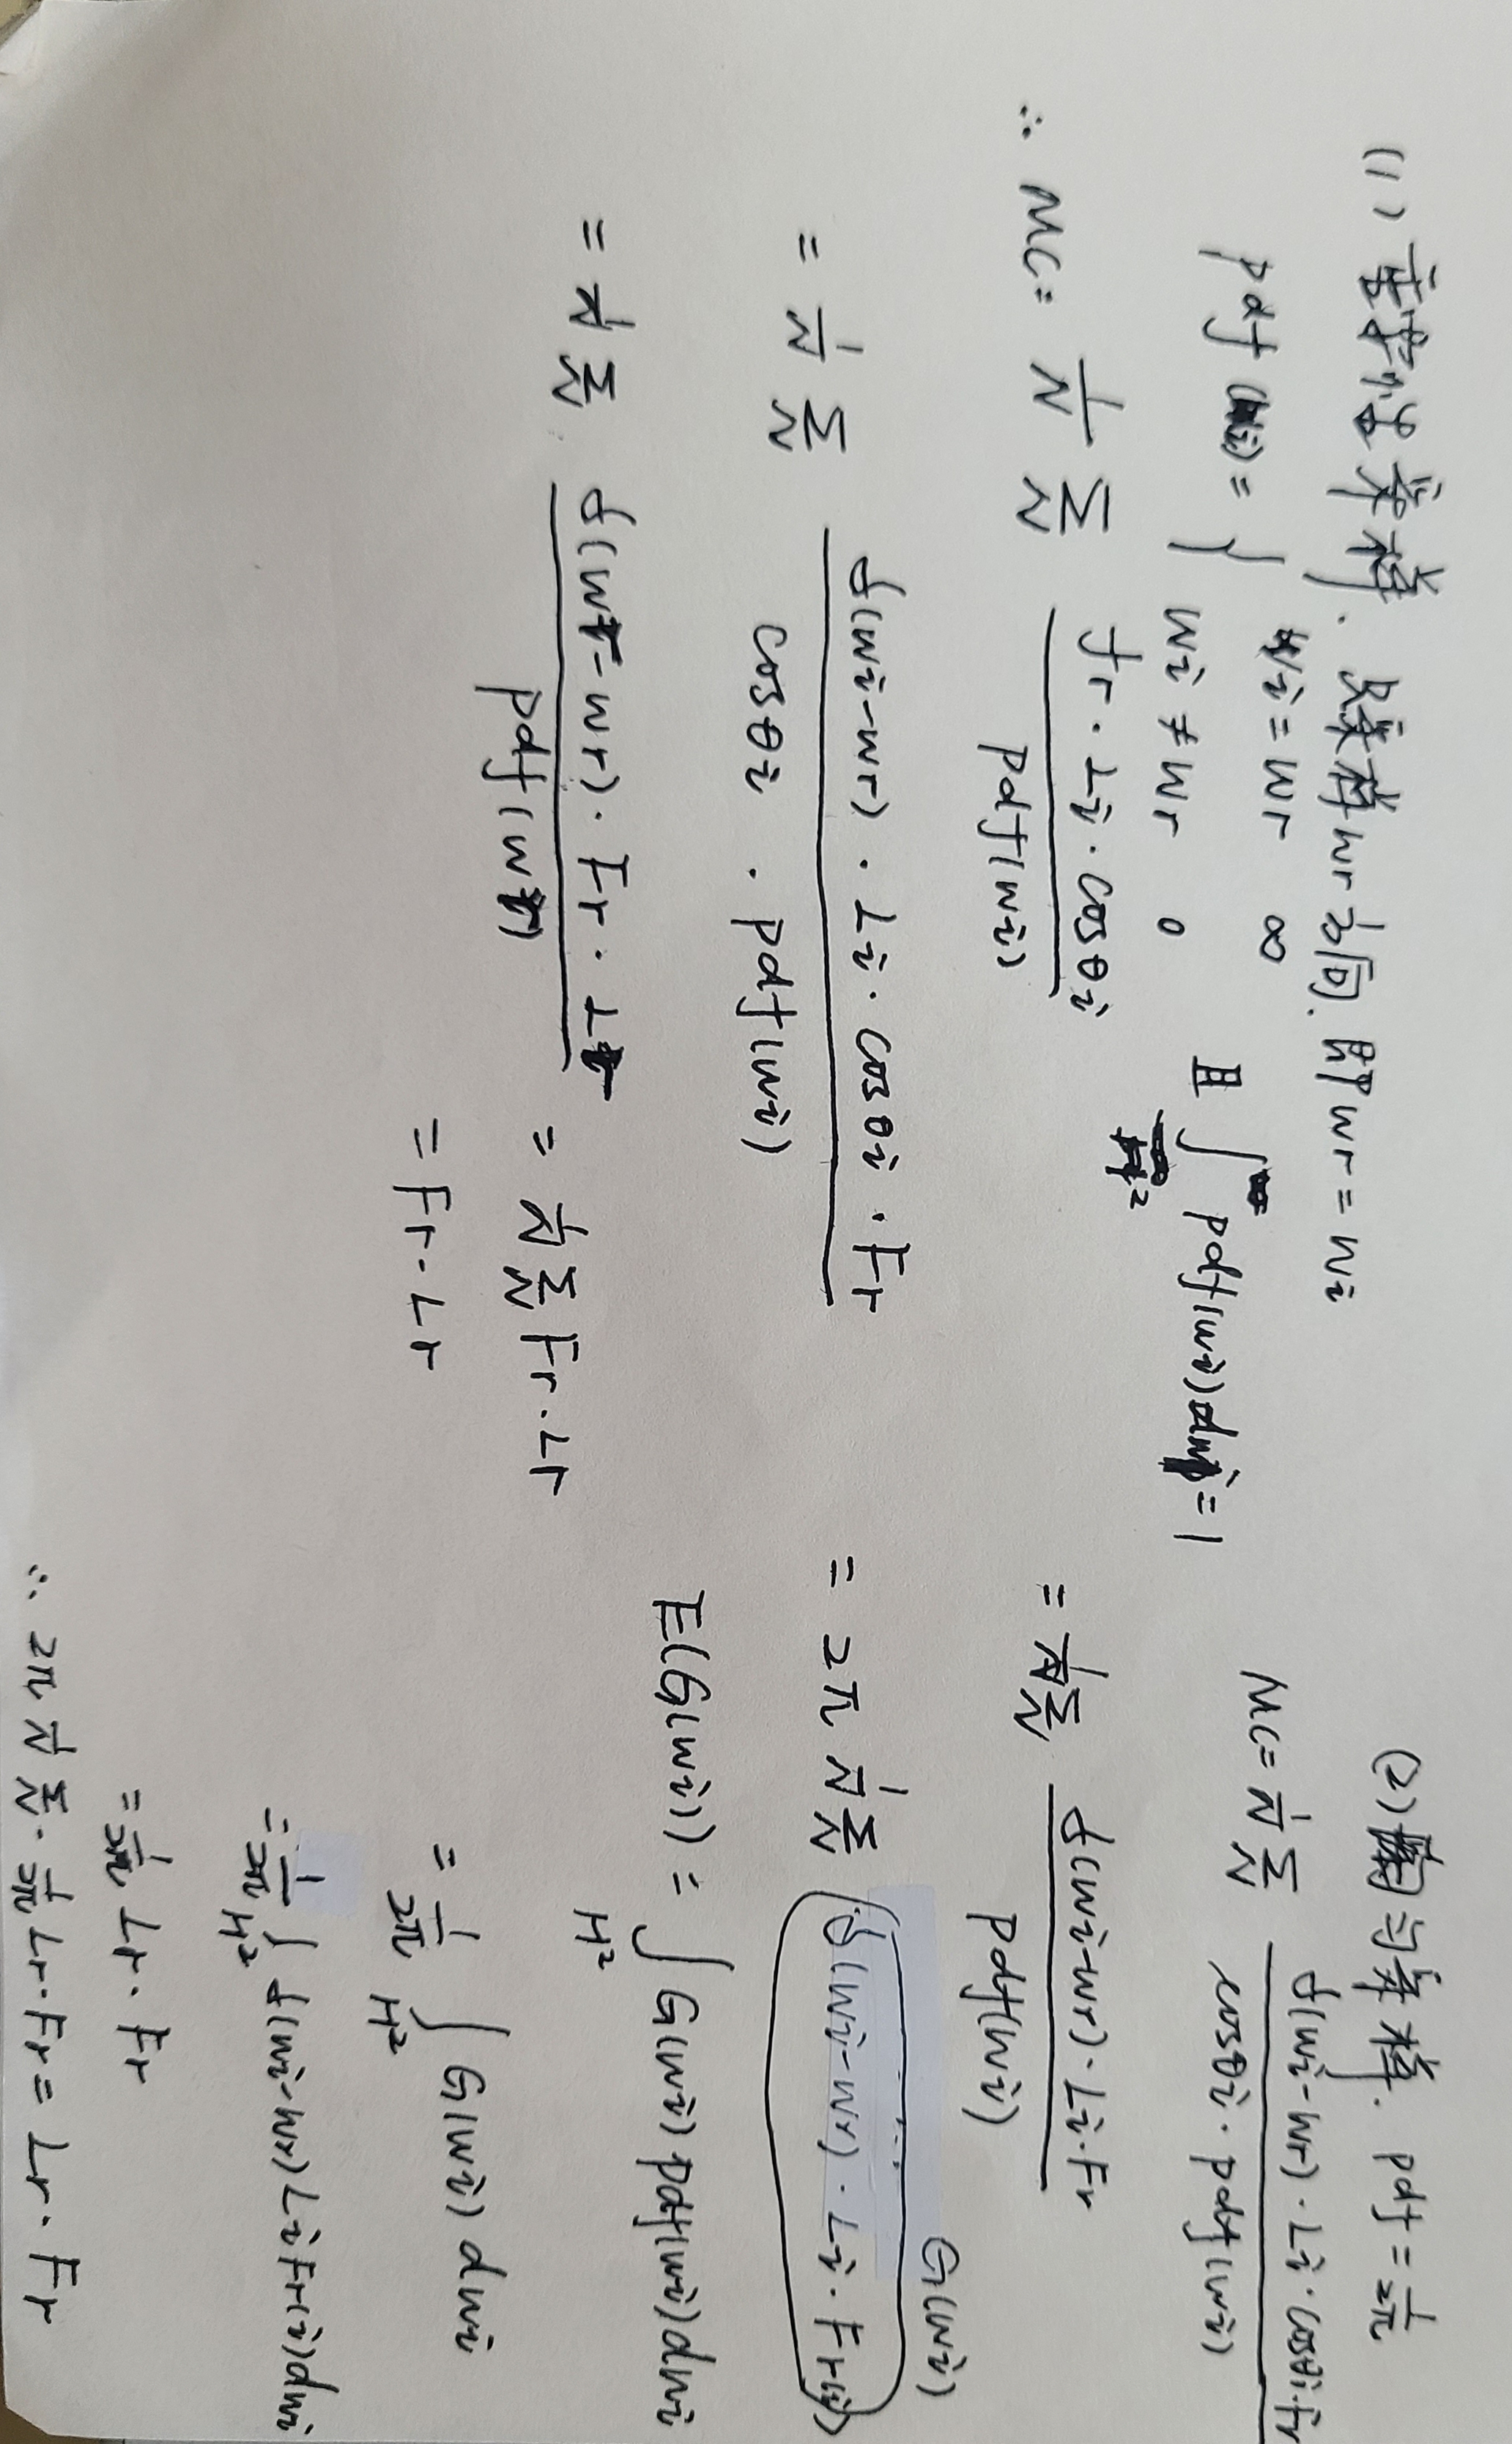 (1) 重要性采样. 只采样wr方向. 即wr = wi
pdf(wi) = { wi = wr ∞
wi ≠ wr 0
且 ∫ pdf(wi)dwi = 1
∴ MC = 1/N Σ_N fr · Li · cosθi / pdf(wi)
= 1/N Σ_N δ(wi-wr) · Li · cosθi · Fr / cosθi · pdf(wi)
= 1/N Σ_N δ(wr-wr) · Fr · Lr / pdf(wr) = 1/N Σ_N Fr · Lr
= Fr · Lr
(2) 均匀采样. pdf = 1/2π
MC = 1/N Σ_N δ(wi-wr) · Li · cosθi · Fr / cosθi · pdf(wi)
= 1/N Σ_N δ(wi-wr) · Li · Fr / pdf(wi)
G(wi)
= 2π 1/N Σ_N δ(wi-wr) · Li · Fr(i)
E(G(wi)) = ∫_H² G(wi) pdf(wi) dwi
= 1/2π ∫_H² G(wi) dwi
= 1/2π ∫_H² δ(wi-wr) Li Fr(i) dwi
= 1/2π Lr · Fr
∴ 2π 1/N Σ_N · 1/2π Lr · Fr = Lr · Fr